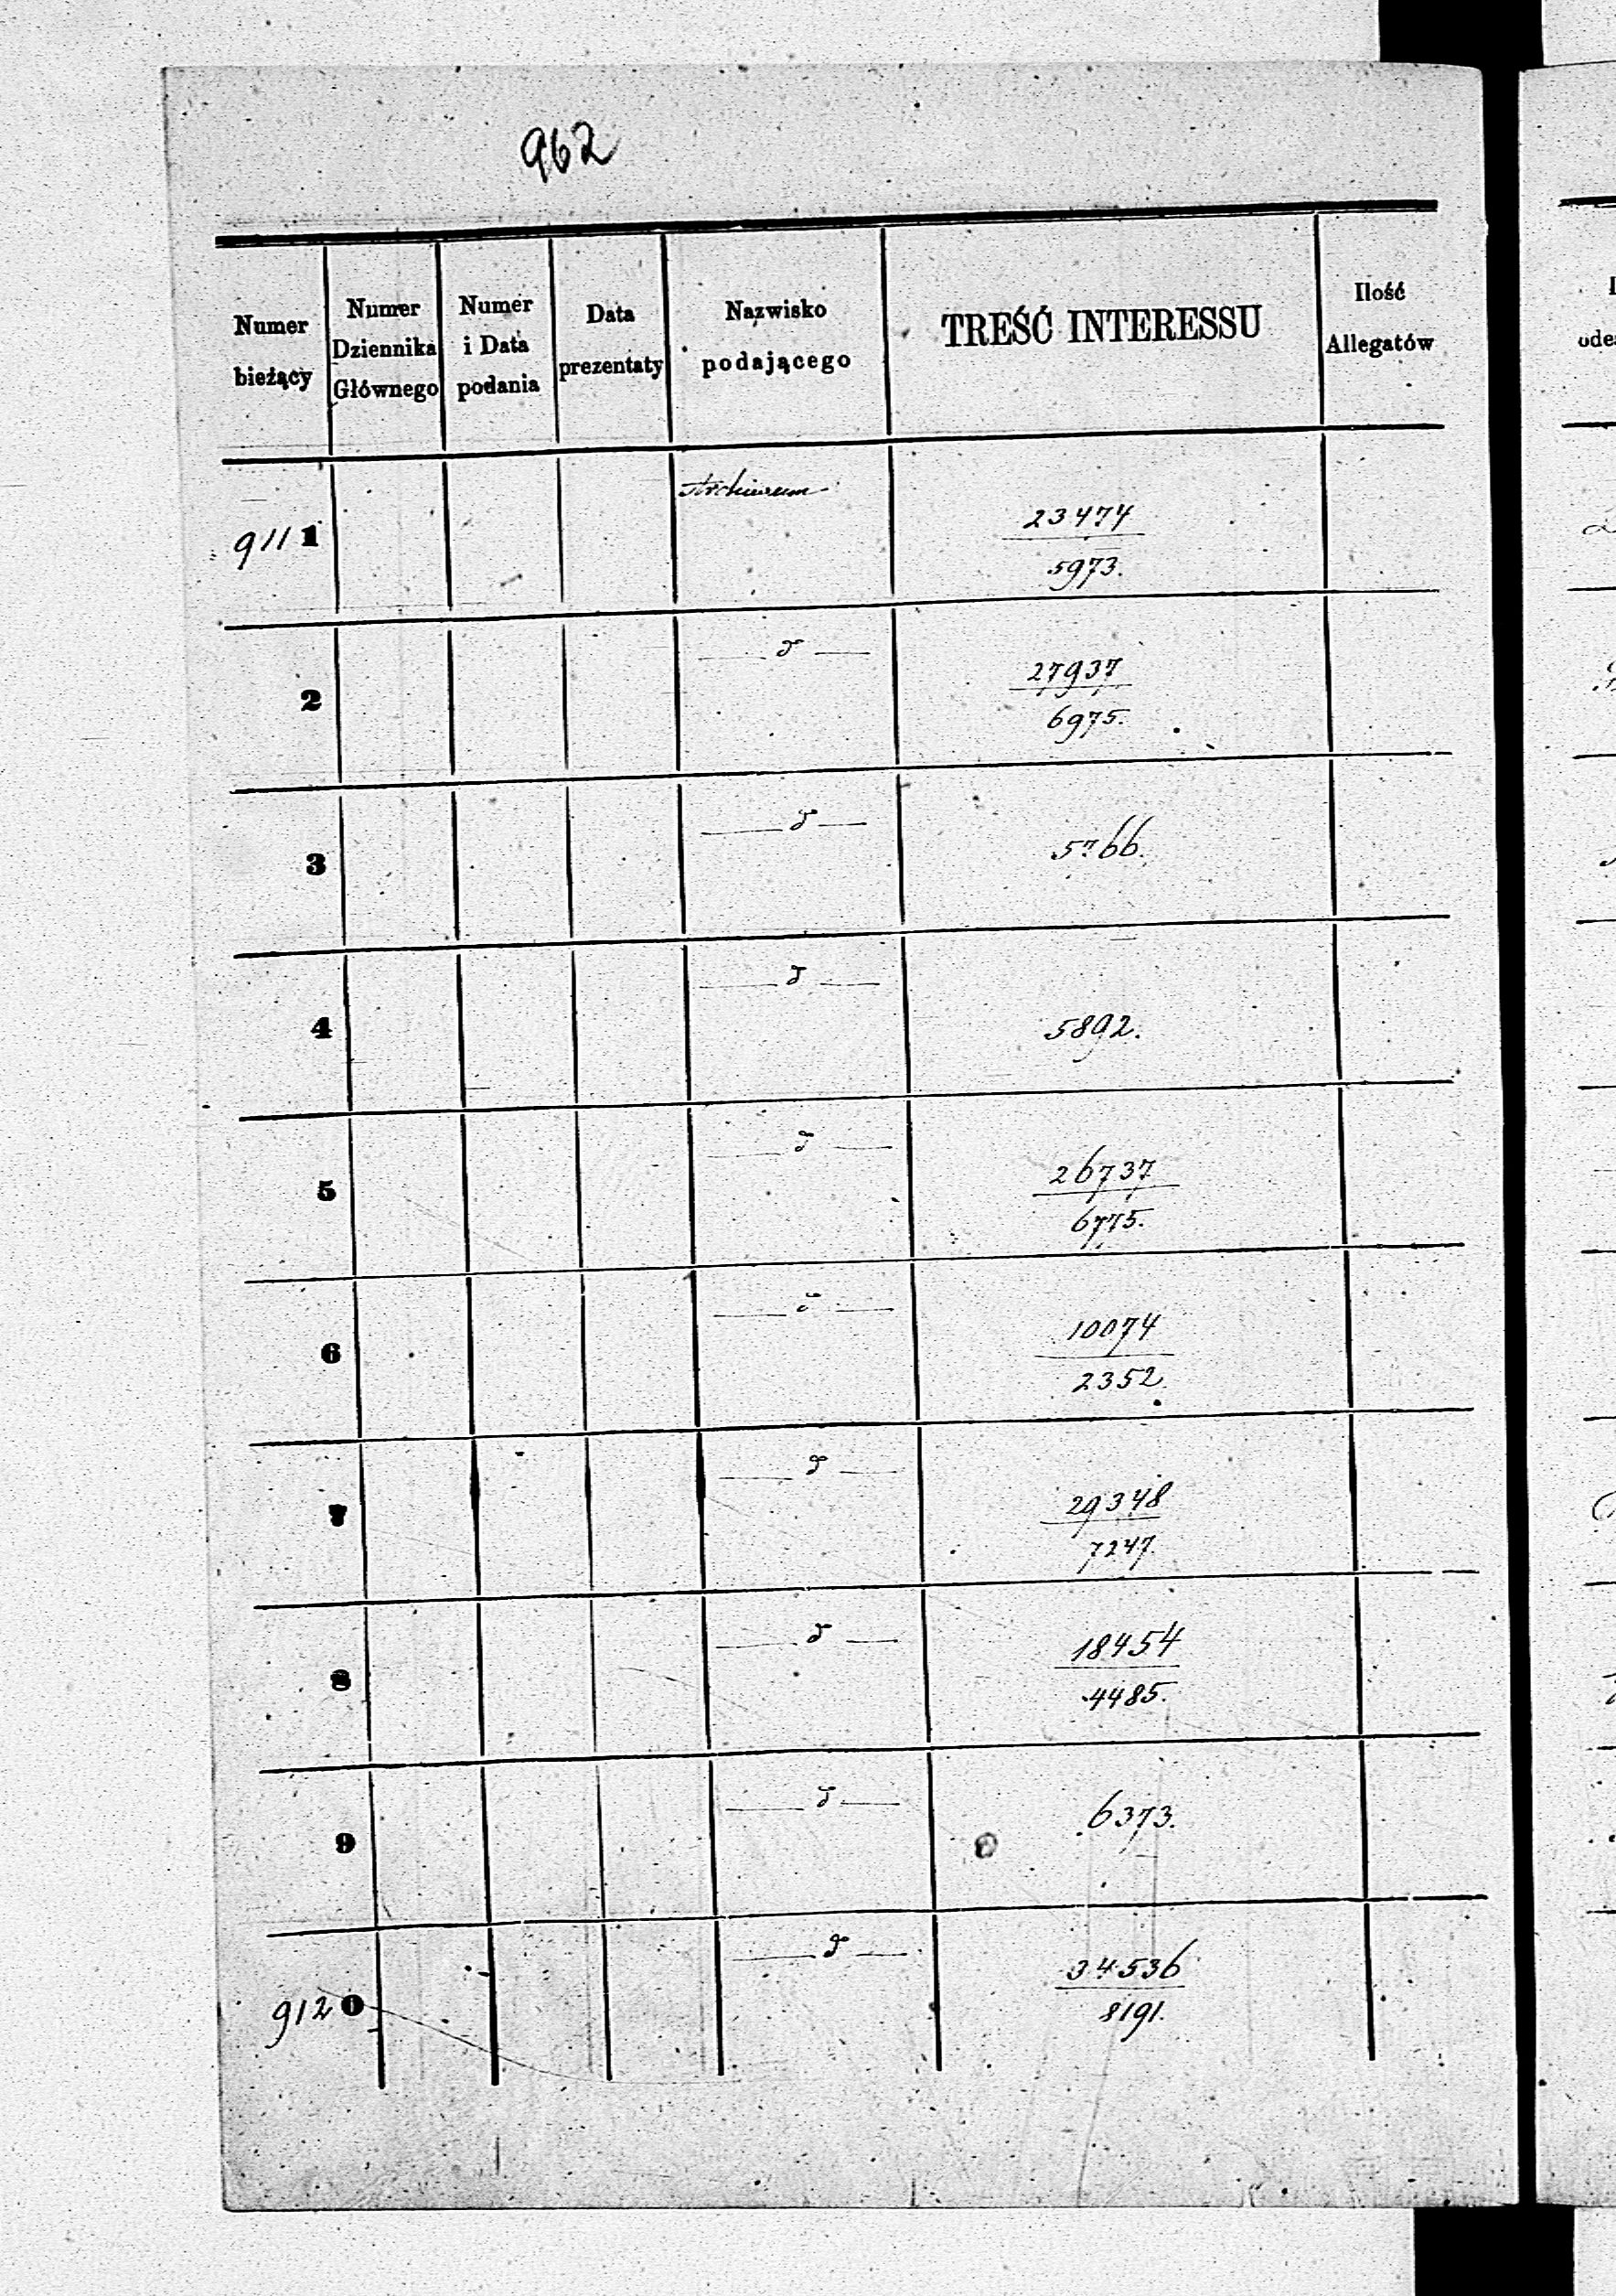 962
Numer bieżący
Numer Dziennika Głównego
Numer i Data podania
Data prezentaty
Nazwisko podającego
TREŚĆ INTERESSU
Ilość Allegatów
9111
Archiwum
23474
5973.
2
27937
6975.
3
5766.
4
5892.
5
26737
6775.
6
10074
2352.
7
29348
7247.
8
18454
4485.
9
6373.
9120
34536
8191.